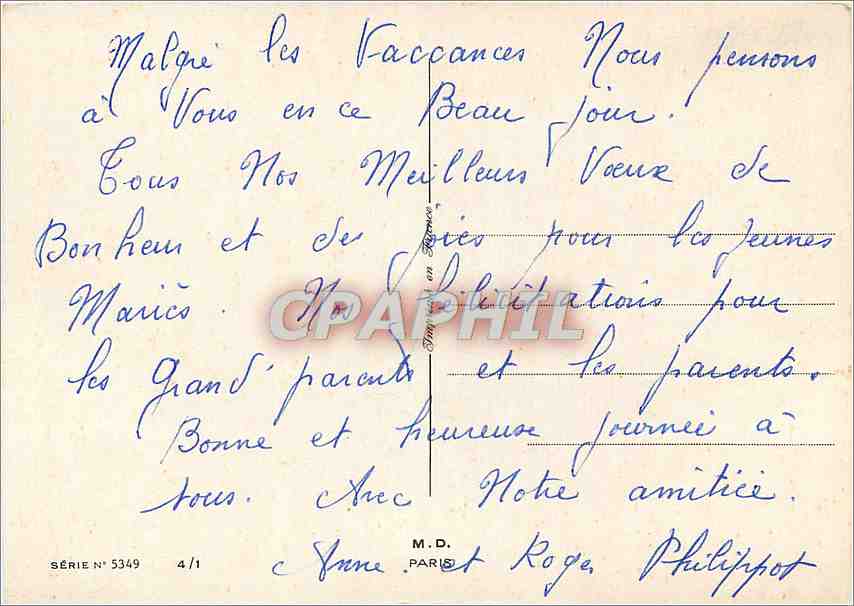 Malgré les Vaccances Nous pensons
à Vous en ce Beau jour.
Tous Nos Meilleurs Vœux de
Bonheur et de joies pour les jeunes
Mariés. Nos félicitations pour
les Grand' parents et les parents.
Bonne et heureuse journée à
tous. Avec Notre amitiée.
Anne. et Roger Philippot
Imprimé en France
CPAPHIL
M.D.
PARIS
SÉRIE N° 5349 4/1